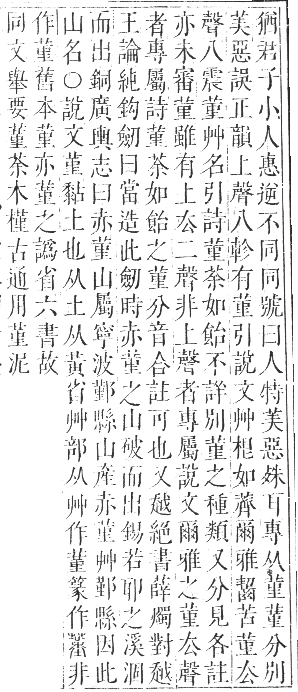 猶君子小人惠逆不同同號曰人特美惡殊耳專从菫堇分別
美惡誤正韻上聲八軫有菫引說文艸根如薺爾雅齧苦菫厺
聲八震菫艸名引詩菫荼如飴不詳別菫之種類又分見各註
亦未審菫雖有上厺二聲非上聲者專屬說文爾雅之菫厺聲
者專屬詩菫荼如飴之菫分音合註可也又越絕書薛燭對越
王論純鈎劒曰當造此劒時赤菫之山破而出錫若耶之溪涸
而出銅廣輿志曰赤菫山屬寧波鄞縣山產赤菫艸鄞縣因此
山名○說文堇黏土也从土从黃省艸部从艸作蓳篆作䕲非
作菫舊本菫亦菫之譌省六書故
同文舉要菫荼木槿古通用菫泥